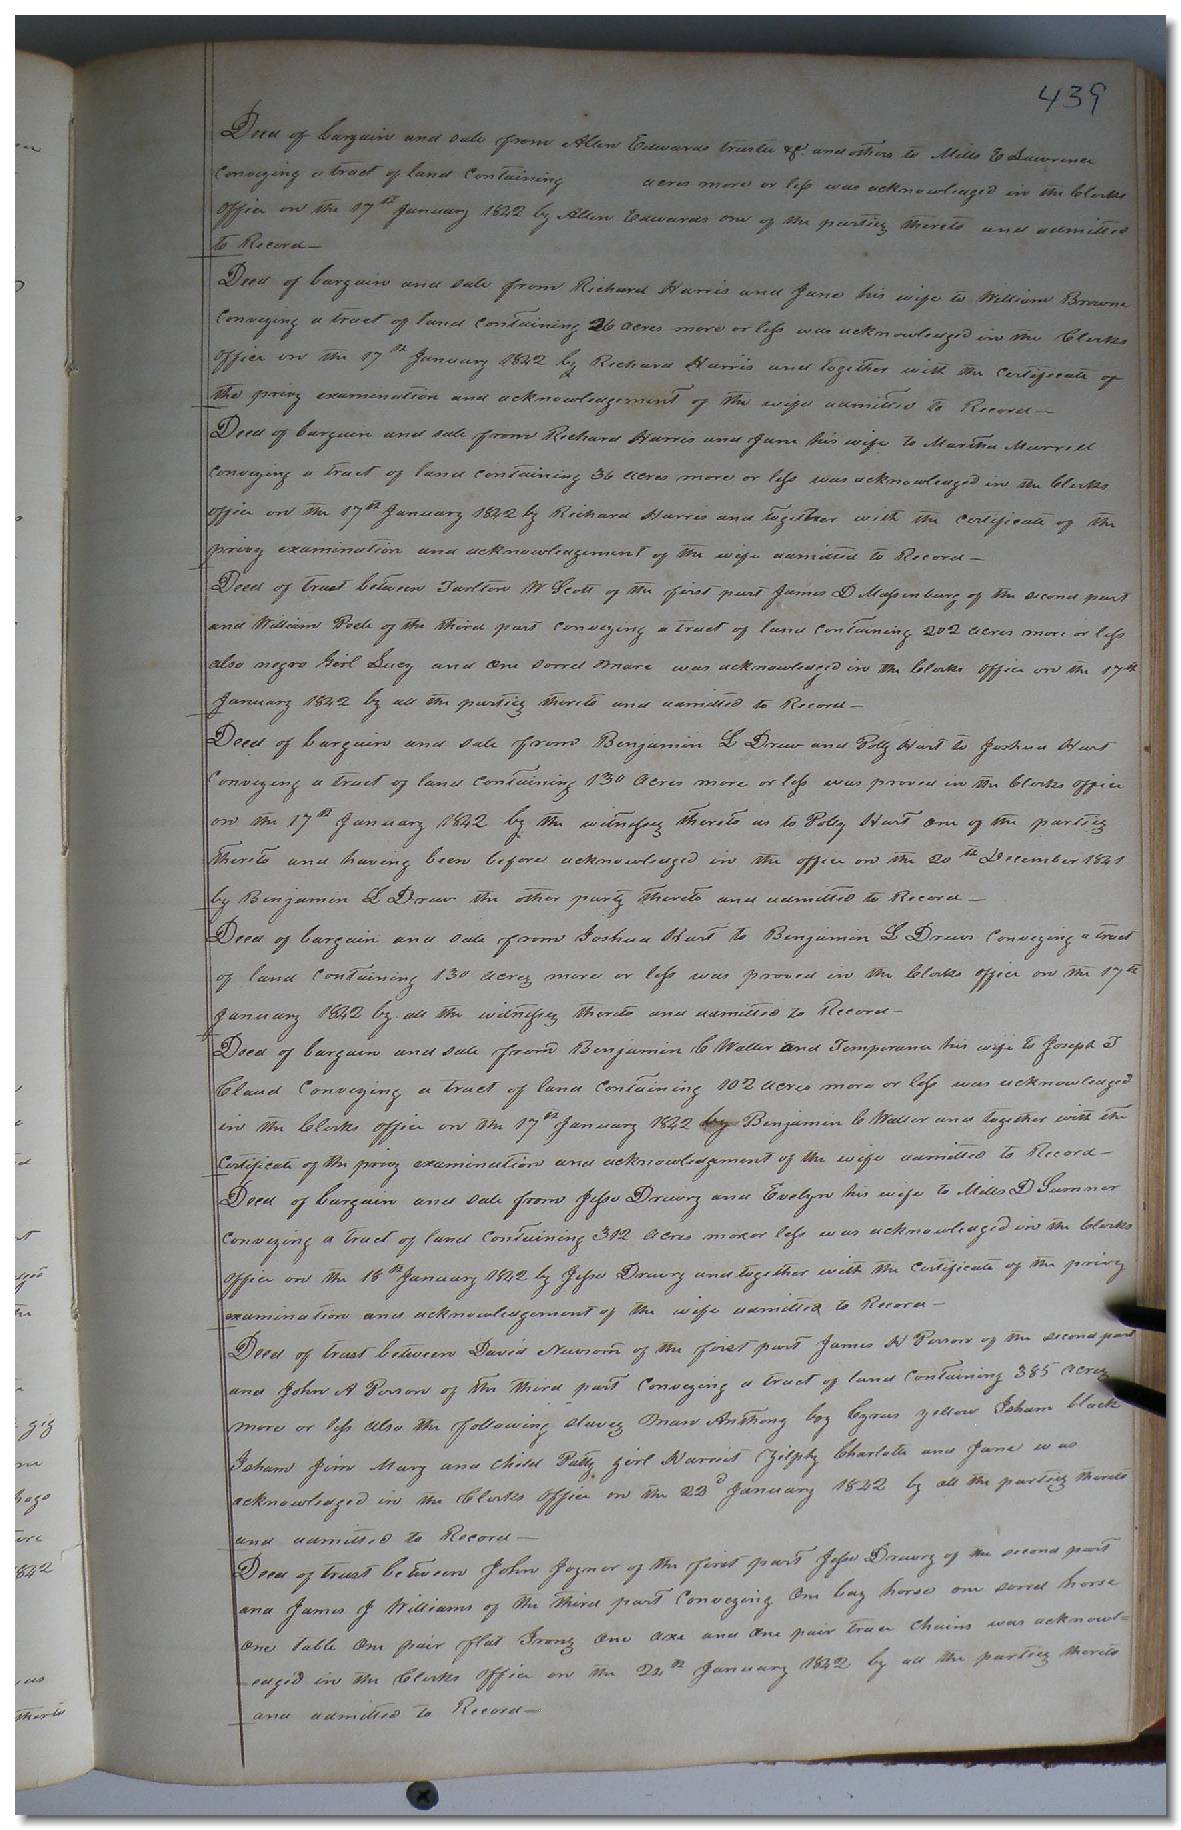 439
Deed of bargain and sale from Allen Edwards trustee &c and others to Mills E Lawrence
conveying a tract of land containing acres more or less was acknowledged in the Clerks
office on the 17th January 1842 by Allen Edwards one of the parties thereto and admitted
to Record—
Deed of bargain and sale from Richard Harris and Jane his wife to William Browne
conveying a tract of land containing 26 acres more or less was acknowledged in the Clerks
office on the 17th January 1842 by Richard Harris and together with the certificate of
the privy examination and acknowledgement of the wife admitted to Record—
Deed of bargain and sale from Richard Harris and Jane his wife to Martha Murrell
conveying a tract of land containing 36 acres more or less was acknowledged in the Clerks
office on the 17th January 1842 by Richard Harris and together with the certificate of the
privy examination and acknowledgement of the wife admitted to Record—
Deed of trust between Tarlton W Scott of the first part James D Massenburg of the second part
and William Pope of the third part conveying a tract of land containing 202 acres more or less
also negro Girl Lucy and one sorrel mare was acknowledged in the Clerks office on the 17th
January 1842 by all the parties thereto and admitted to Record—
Deed of bargain and sale from Benjamin L Drew and Polly Hart to Joshua Hart
conveying a tract of land containing 130 acres more or less was proved in the Clerks office
on the 17th January 1842 by the witnesses thereto as to Polly Hart one of the parties
thereto and having been before acknowledged in the office on the 20th December 1841
by Benjamin L Drew the other party thereto and admitted to Record—
Deed of bargain and sale from Joshua Hart to Benjamin L Drew conveying a tract
of land containing 130 acres more or less was proved in the Clerks office on the 17th
January 1842 by all the witnesses thereto and admitted to Record—
Deed of bargain and sale from Benjamin C Waller and Temperance his wife to Joseph T
Claud conveying a tract of land containing 102 acres more or less was acknowledged
in the Clerks office on the 17th January 1842 by Benjamin C Waller and together with the
certificate of the privy examination and acknowledgement of the wife admitted to Record—
Deed of bargain and sale from Jesse Drewry and Evelyn his wife to Mills D Sumner
conveying a tract of land containing 312 acres more or less was acknowledged in the Clerks
office on the 18th January 1842 by Jesse Drewry and together with the certificate of the privy
examination and acknowledgement of the wife admitted to Record—
Deed of trust between David Newsom of the first part James W Person of the second part
and John A Person of the third part conveying a tract of land containing 385 acres
more or less also the following slaves man Anthony boy Cyrus yellow Isham black
Isham Jim Mary and child Patty girl Harriet Zilphy Charlotte and Jane was
acknowledged in the Clerks office on the 22d January 1842 by all the parties thereto
and admitted to Record—
Deed of trust between John Joyner of the first part Jesse Drewry of the second part
and James J Williams of the third part conveying one bay horse one sorrel horse
one table one pair flat Irons one axe and one pair trace chains was acknowl=
=edged in the Clerks office on the 24th January 1842 by all the parties thereto
and admitted to Record—